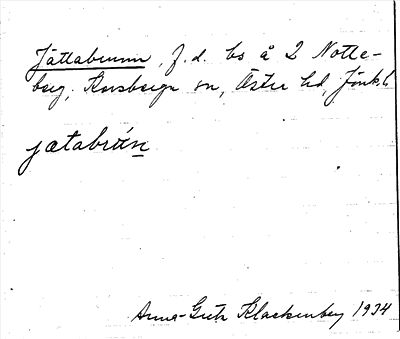 Jättabrunn, f.d. bs å 2 Notte-
berg, Korsberga sn, Östra hd, Jönk. l
jætabrún
Anna-Greta Klackenberg 1934